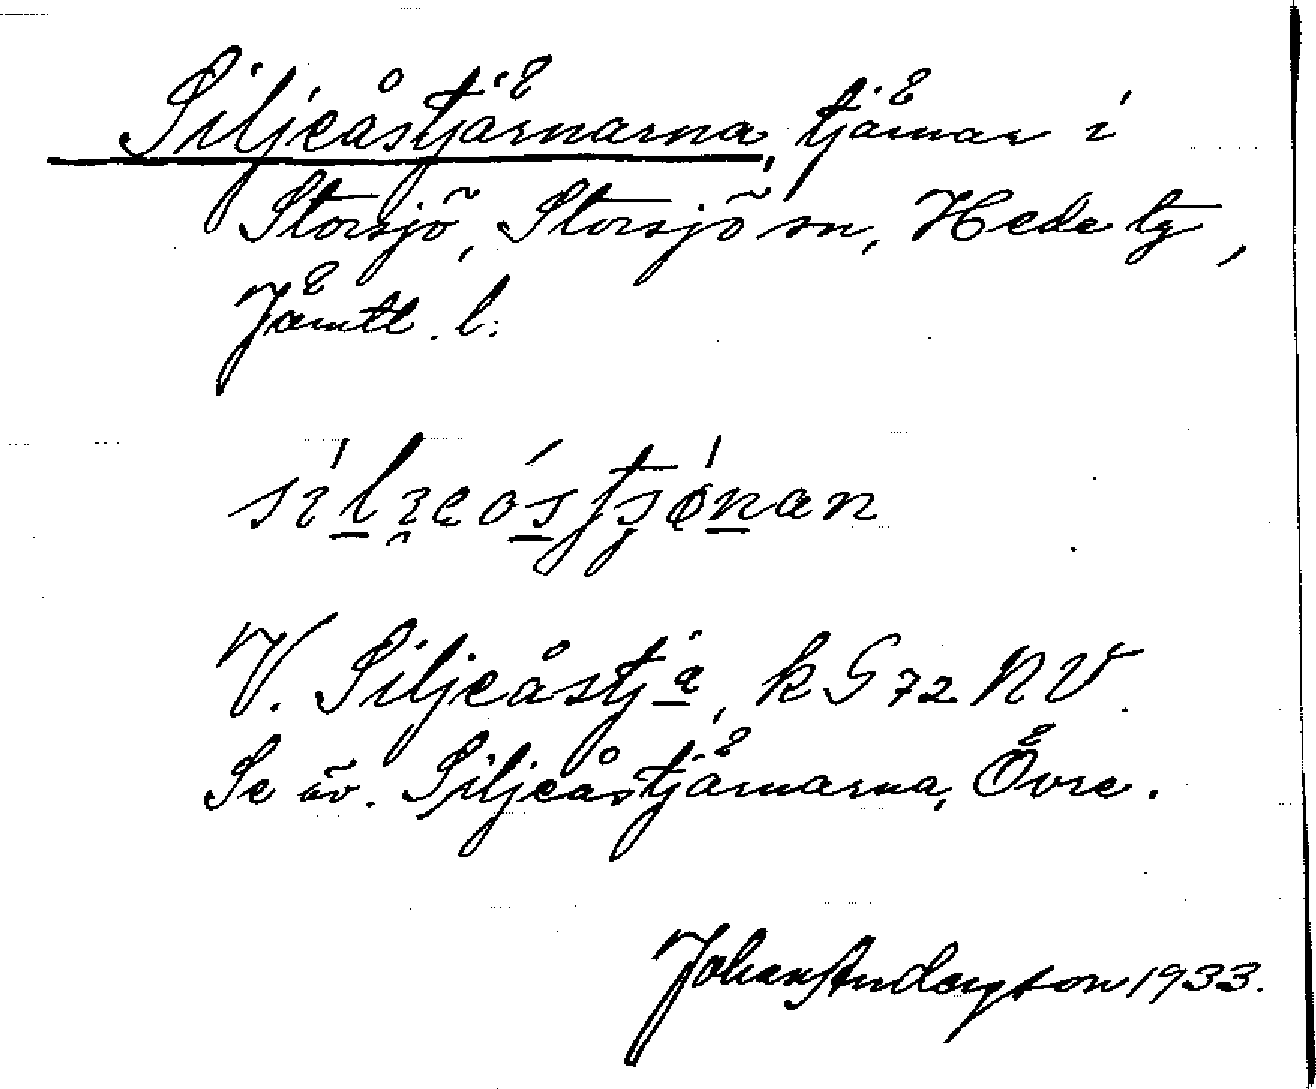 Siljeåstjärnarna, tjärnar i
Storsjö, Storsjö sn, Hede tg,
Jämtl. l.
V. Siljeåstjä, k G 72 NV.
Se äv. Siljeåstjärnarna, Övre.
Johan Anderzson 1933.